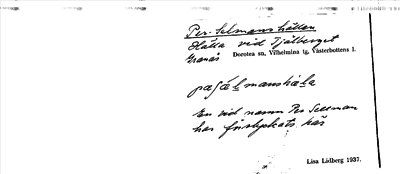 Per-Selmanshällan
Hälla vid Tjälberget
Granås Dorotea sn, Vilhelmina tg, Västerbottens l.
En vid namn Per Sellman
har förolyckats här
Lisa Lidberg 1937.